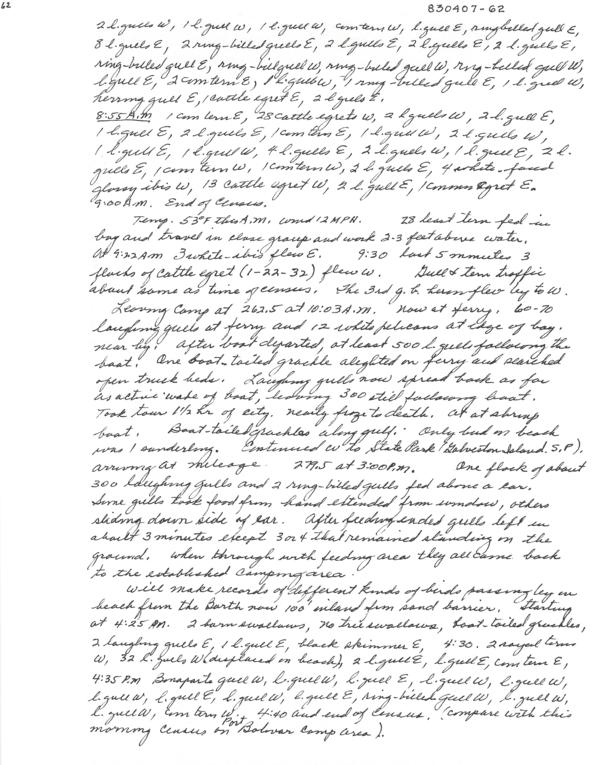 62
830407-62
2 l.gulls W, 1 l.gull W, 1 l.gull W, com tern W, l.gull E, ringbilled gull E,
8 l.gulls E, 2 ring-billed gulls E, 2 l.gulls E, 2 l.gulls E, 2 l.gulls E,
ring-billed gull E, ring-bill gull W, ring-billed gull W, ring-billed gull W,
l.gull E, 2 com tern E, 1 l.gull W, 1 ring-billed gull E, 1 l.gull W,
herring gull E, 1 cattle egret E, 2 l.gulls E.
8:55 A.M 1 com tern E, 28 cattle egrets W, 2 l.gulls W, 2 l.gull E,
1 l.gull E, 2 l.gulls E, 1 com tern E, 1 l.gull W, 2 l.gulls W,
1 l.gull E, 1 l.gull W, 4 l.gulls E, 2 l.gulls W, 1 l.gull E, 2 l.
gulls E, 1 com tern W, 1 com tern W, 2 l.gulls E, 4 white-faced
glossy ibis W, 13 cattle egret W, 2 l.gull E, 1 common egret E.
9:00 A.M. End of Census.
Temp. 53°F this A.M. wind 12 MPH. 28 least tern fed in
bay and travel in close group and work 2-3 feet above water.
At 9:22 AM 3 white-ibis flew E. 9:30 last 5 minutes 3
flocks of cattle egret (1-22-32) flew W. Gull & tern traffic
about same as time of census. The 3rd g.b. heron flew by to W.
Leaving Camp at 262.5 at 10:03 A.M. now at ferry. 60-70
laughing gulls at ferry and 12 white pelicans at edge of bay.
near by. After boat departed, at least 500 l.gulls following the
boat. One boat-tailed grackle alighted on ferry and searched
open truck beds. Laughing gulls now spread back as far
as active wake of boat, leaving 300 still following boat.
Took tour 1½ hr of city. nearly froze to death. At at shrimp
boat. Boat-tailed grackles along gulf. Only bird on beach
was 1 sanderling. Continued W to State Park (Galveston Island. S.P).
arriving at mileage 279.5 at 3:00 P.M. One flock of about
300 laughing gulls and 2 ring-billed gulls fed above a car.
Some gulls took food from hand extended from window, others
sliding down side of car. After feeding ended gulls left in
about 3 minutes except 3 or 4 that remained standing on the
ground. When through with feeding area they all came back
to the established camping area.
Will make records of different kinds of birds passing by on
beach from the Barth now 100' inland from sand barrier. Starting
at 4:25 AM. 2 barn swallows, no tree swallows, boat-tailed grackles,
2 laughing gulls E, 1 l.gull E, black skimmer E, 4:30. 2 royal terns
W, 32 l.gulls W (displaced on beach), 2 l.gull E, l.gull E, com tern E,
4:35 P.M Bonaparte gull W, l.gull W, l.gull E, l.gull W, l.gull W,
l.gull W, l.gull E, l.gull W, l.gull E, ring-billed gull W, l.gull W,
l.gull W, com tern W, 4:40 and end of Census. (compare with this
morning census on Port Bolovar Camp area).